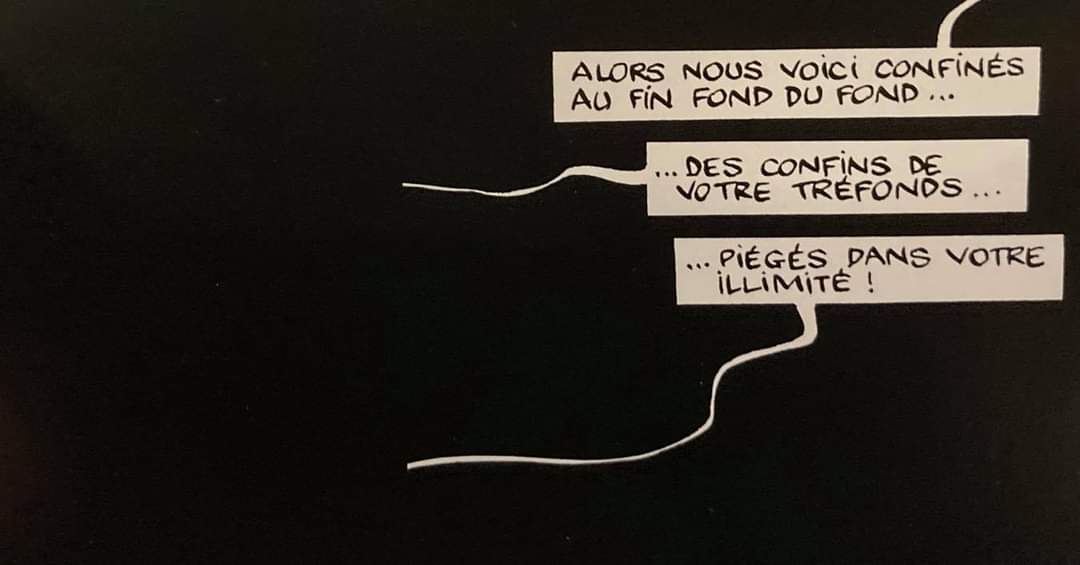 ALORS NOUS VOICI CONFINÉS
AU FIN FOND DU FOND...
...DES CONFINS DE
VOTRE TRÉFONDS...
...PIÉGÉS DANS VOTRE
ILLIMITÉ !